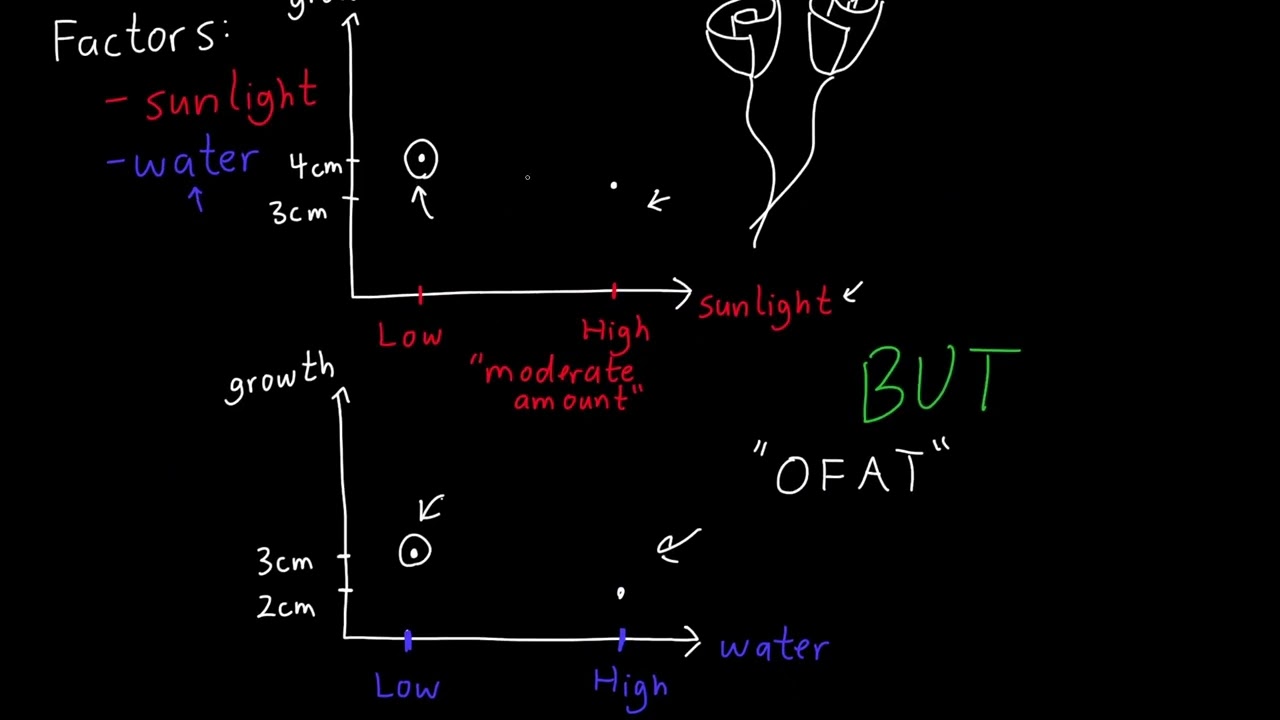 Factors:
- sunlight
- water
4cm
3cm
Low
High
sunlight
"moderate
amount"
growth
BUT
"OFAT"
3cm
2cm
Low
High
water